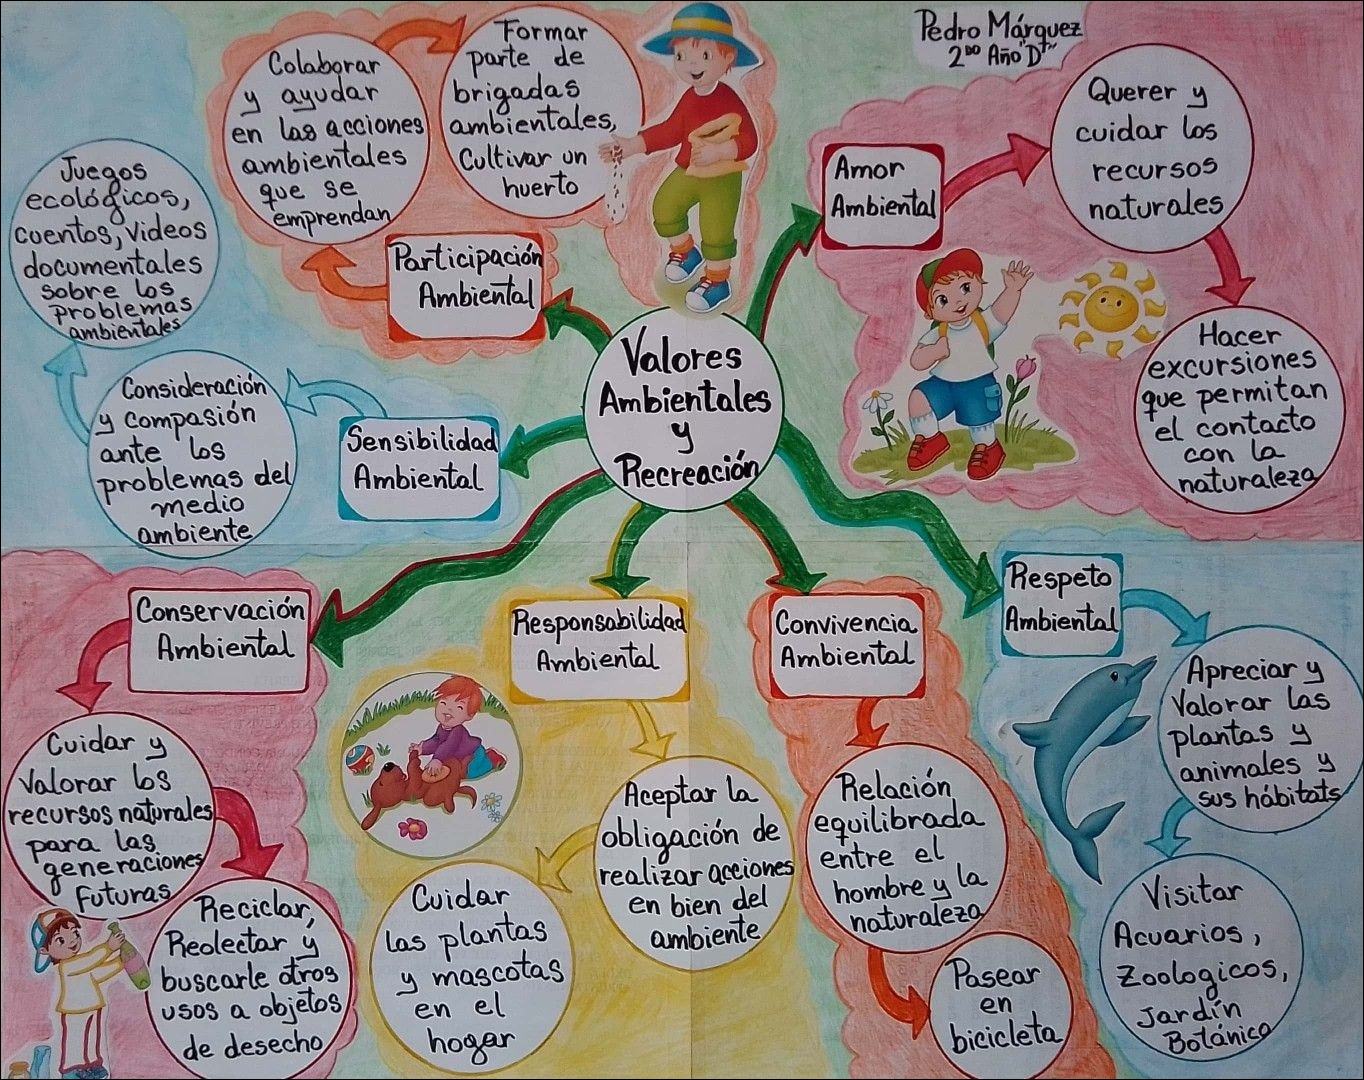 Pedro Márquez
2do Año "D"
Valores
Ambientales
y
Recreación
Amor
Ambiental
Querer y
cuidar los
recursos
naturales
Hacer
excursiones
que permitan
el contacto
con la
naturaleza
Respeto
Ambiental
Apreciar y
Valorar las
plantas y
animales y
sus hábitats
Visitar
Acuarios,
Zoologicos,
Jardín
Botánico
Convivencia
Ambiental
Relación
equilibrada
entre el
hombre y la
naturaleza
Pasear
en
bicicleta
Responsabilidad
Ambiental
Aceptar la
obligación de
realizar acciones
en bien del
ambiente
Cuidar
las plantas
y mascotas
en el
hogar
Conservación
Ambiental
Cuidar y
Valorar los
recursos naturales
para las
generaciones
Futuras
Reciclar,
Reolectar y
buscarle otros
usos a objetos
de desecho
Sensibilidad
Ambiental
Consideración
y compasión
ante los
problemas del
medio
ambiente
Juegos
ecológicos,
cuentos, Videos
documentales
sobre los
problemas
ambientales
Participación
Ambiental
Colaborar
y ayudar
en las acciones
ambientales
que se
emprendan
Formar
parte de
brigadas
ambientales,
Cultivar un
huerto